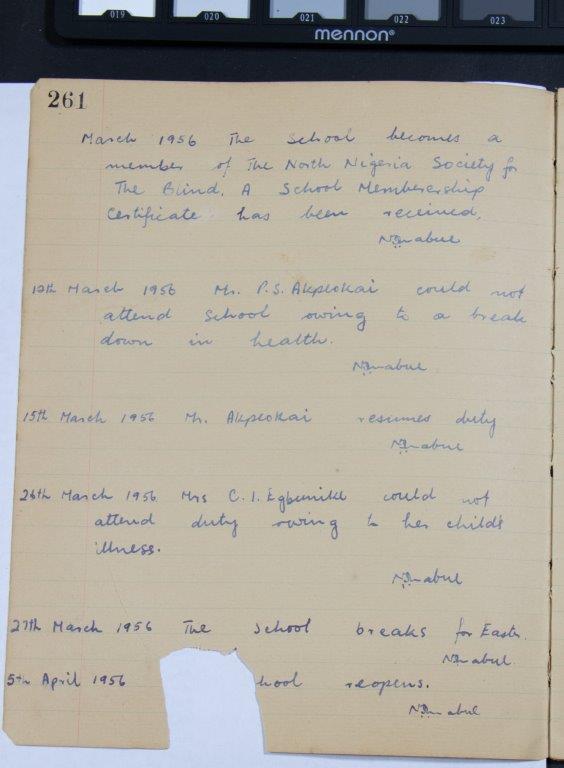 019 020 021 022 023
mennon®
261
March 1956 The School becomes a
member of The North Nigeria Society for
The Blind. A School Membership
Certificate has been received.
12th March 1956 Mr. P.S. Akpeokai could not
attend school owing to a break
down in health.
15th March 1956 Mr. Akpeokai resumes duty
26th March 1956 Mrs C. I. Egbunike could not
attend duty owing to her child's
illness.
27th March 1956 The School breaks for Easter.
5th April 1956 hool reopens.